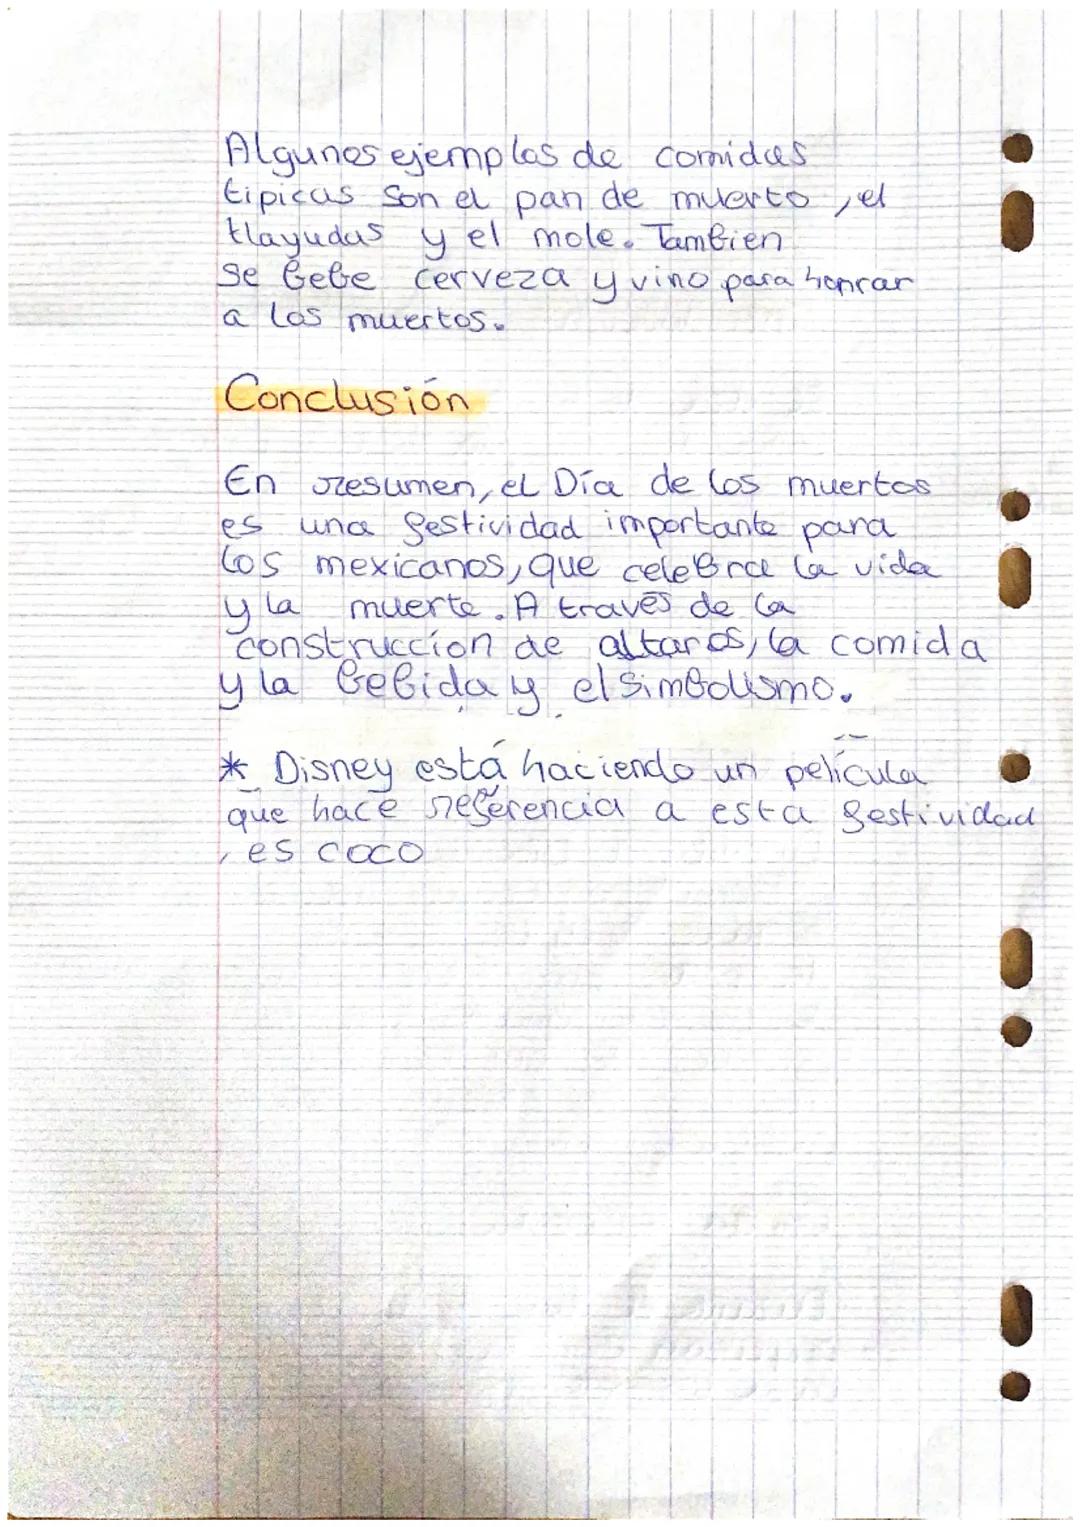 Algunos ejemplos de comidas
tipicas son el pan de muerto, el
tlayudas y el mole. Tambien
se bebe cerveza y vino para honrar
a los muertos.
Conclusión
En resumen, el Día de los muertos
es una festividad importante para
los mexicanos, que celebra la vida
y la muerte. A través de la
construccíon de altares, la comida
y la bebida y el simbolismo.
* Disney está haciendo un película
que hace referencia a esta festividad
, es coco